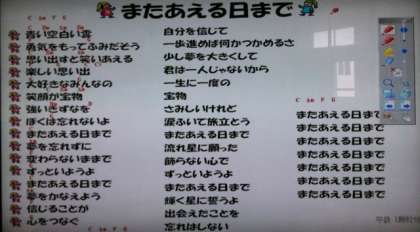 またあえる日まで
C Em F G
青い空白い雲
勇気をもってふみだそう
思い出すと笑いあえる
楽しい思い出
大好きなみんなの
笑顔が宝物
強いきずなを
ぼくは忘れないよ
またあえる日まで
夢を忘れずに
変わらないままで
ずっといようよ
またあえる日まで
夢をかなえよう
信じることが
心をつなぐ
自分を信じて
一歩進めば何かつかめるさ
少し夢を大きくして
君は一人じゃないから
一生に一度の
宝物
さみしいけれど
涙ふいて旅立とう
またあえる日まで
流れ星に願った
飾らない心で
ずっといようよ
またあえる日まで
輝く星に誓うよ
出会えたことを
忘れはしない
C Em F G
またあえる日まで
またあえる日まで
またあえる日まで
またあえる日まで
またあえる日まで